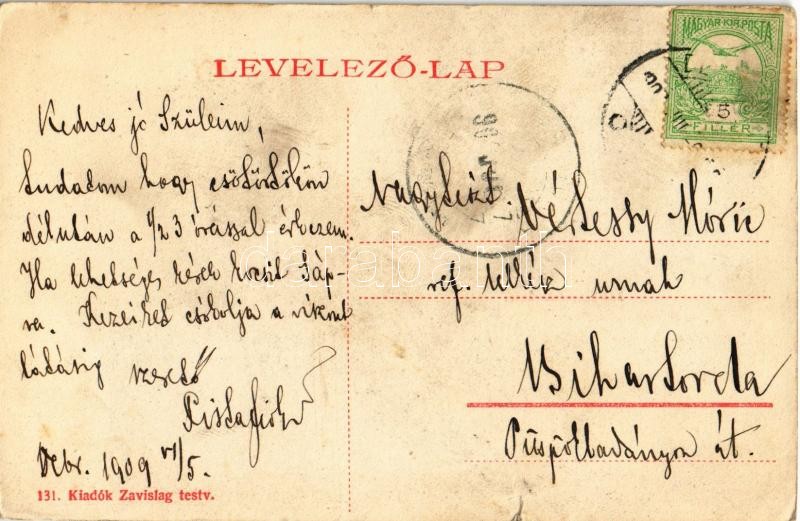 LEVELEZŐ-LAP
MAGYAR·KIR·POSTA
5
FILLÉR
Kedves jó Szüleim,
tudatom hogy csötörtökön
délután a 1/2 3 órással érkezem.
Ha lehetséges kérek kocsit Sáp-
ra. Kezeiket csókolja a viszont
látásig szerető
Pistafiok
Debr. 1909 VI/5.
131. Kiadók Zavislag testv.
Nagytiszt.
Vértessy Móric
ref. lelkész urnak
Bihartorda
Püspökladányon át.
darabanth